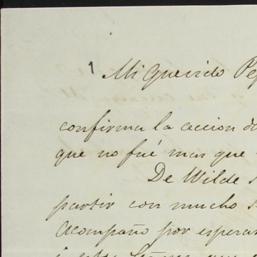 1 Mi querido Pe
confirma la accion d
que no fué mas que
De Wilde s
partir con mucho s
Acompaño por espera